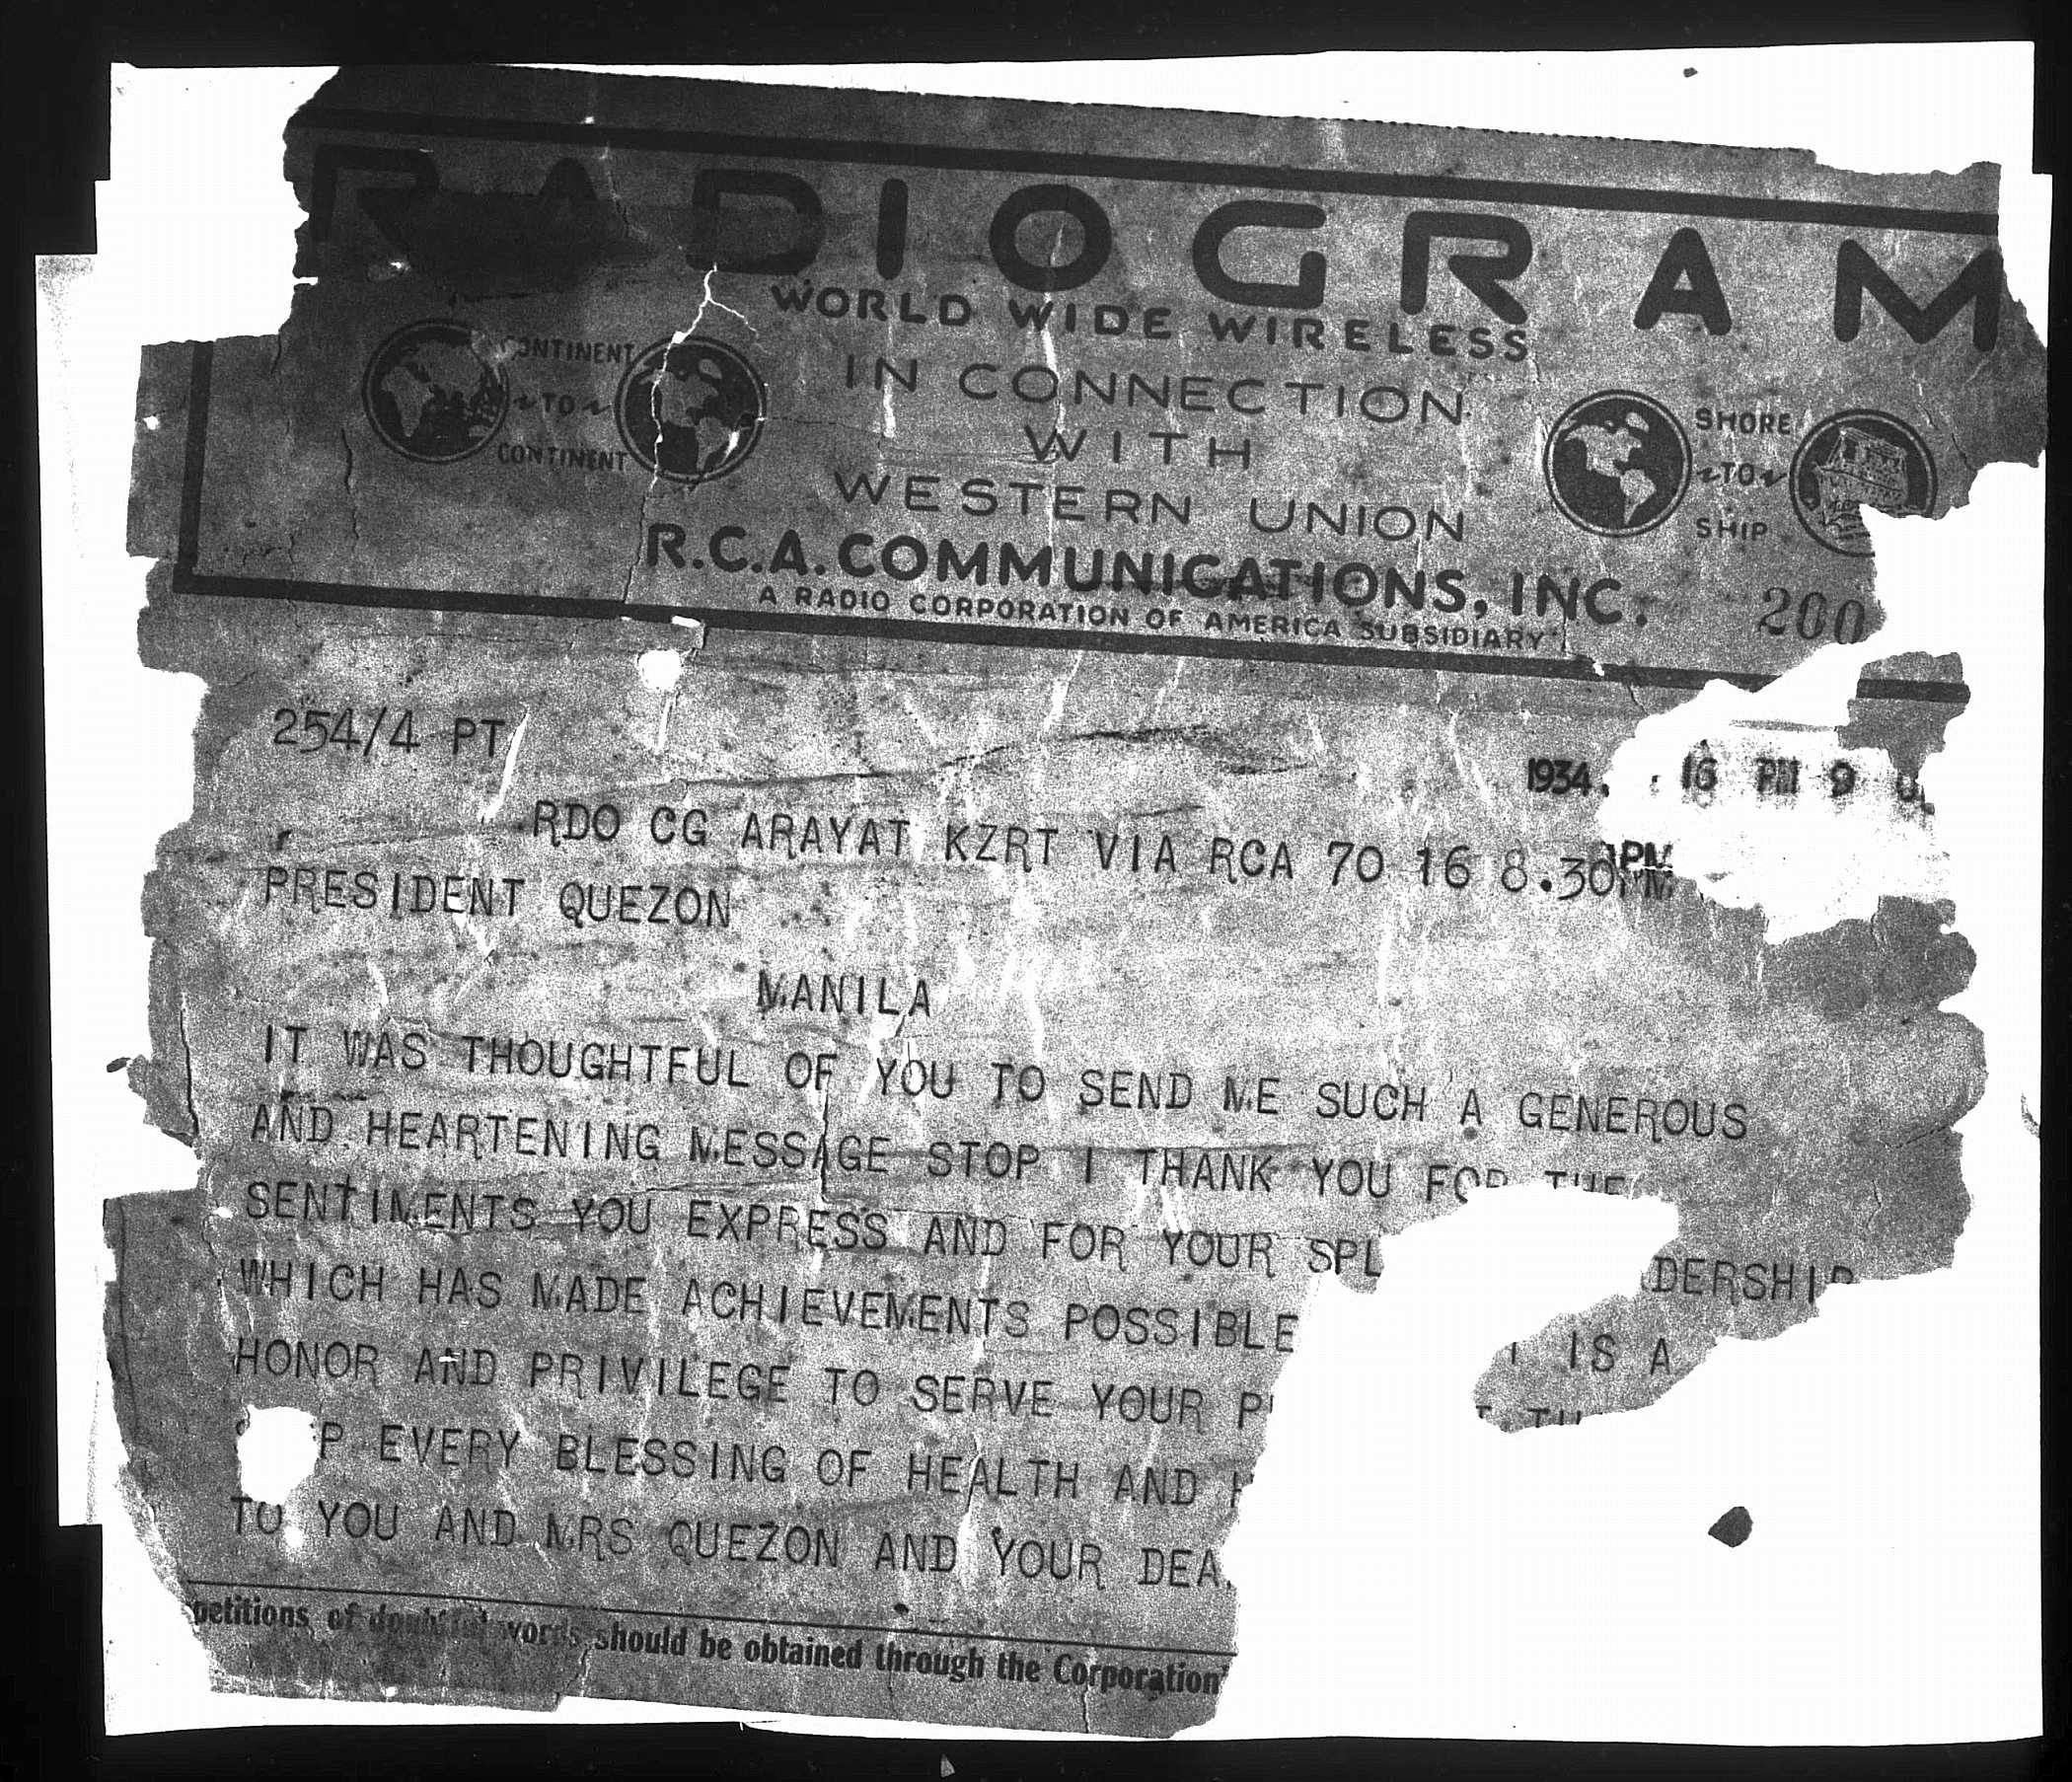 RADIOGRAM
WORLD WIDE WIRELESS
IN CONNECTION
WITH
WESTERN UNION
R.C.A. COMMUNICATIONS, INC.
A RADIO CORPORATION OF AMERICA SUBSIDIARY
CONTINENT
TO
CONTINENT
SHORE
TO
SHIP
200
254/4 PT
1934. 16 PM 9
RDO CG ARAYAT KZRT VIA RCA 70 16 8.30PM
PRESIDENT QUEZON
MANILA
IT WAS THOUGHTFUL OF YOU TO SEND ME SUCH A GENEROUS
AND HEARTENING MESSAGE STOP I THANK YOU FOR THE
SENTIMENTS YOU EXPRESS AND FOR YOUR SPL DERSHIP
WHICH HAS MADE ACHIEVEMENTS POSSIBLE IS A
HONOR AND PRIVILEGE TO SERVE YOUR
P EVERY BLESSING OF HEALTH AND
TO YOU AND MRS QUEZON AND YOUR DEA
petitions of doubtful words should be obtained through the Corporation'